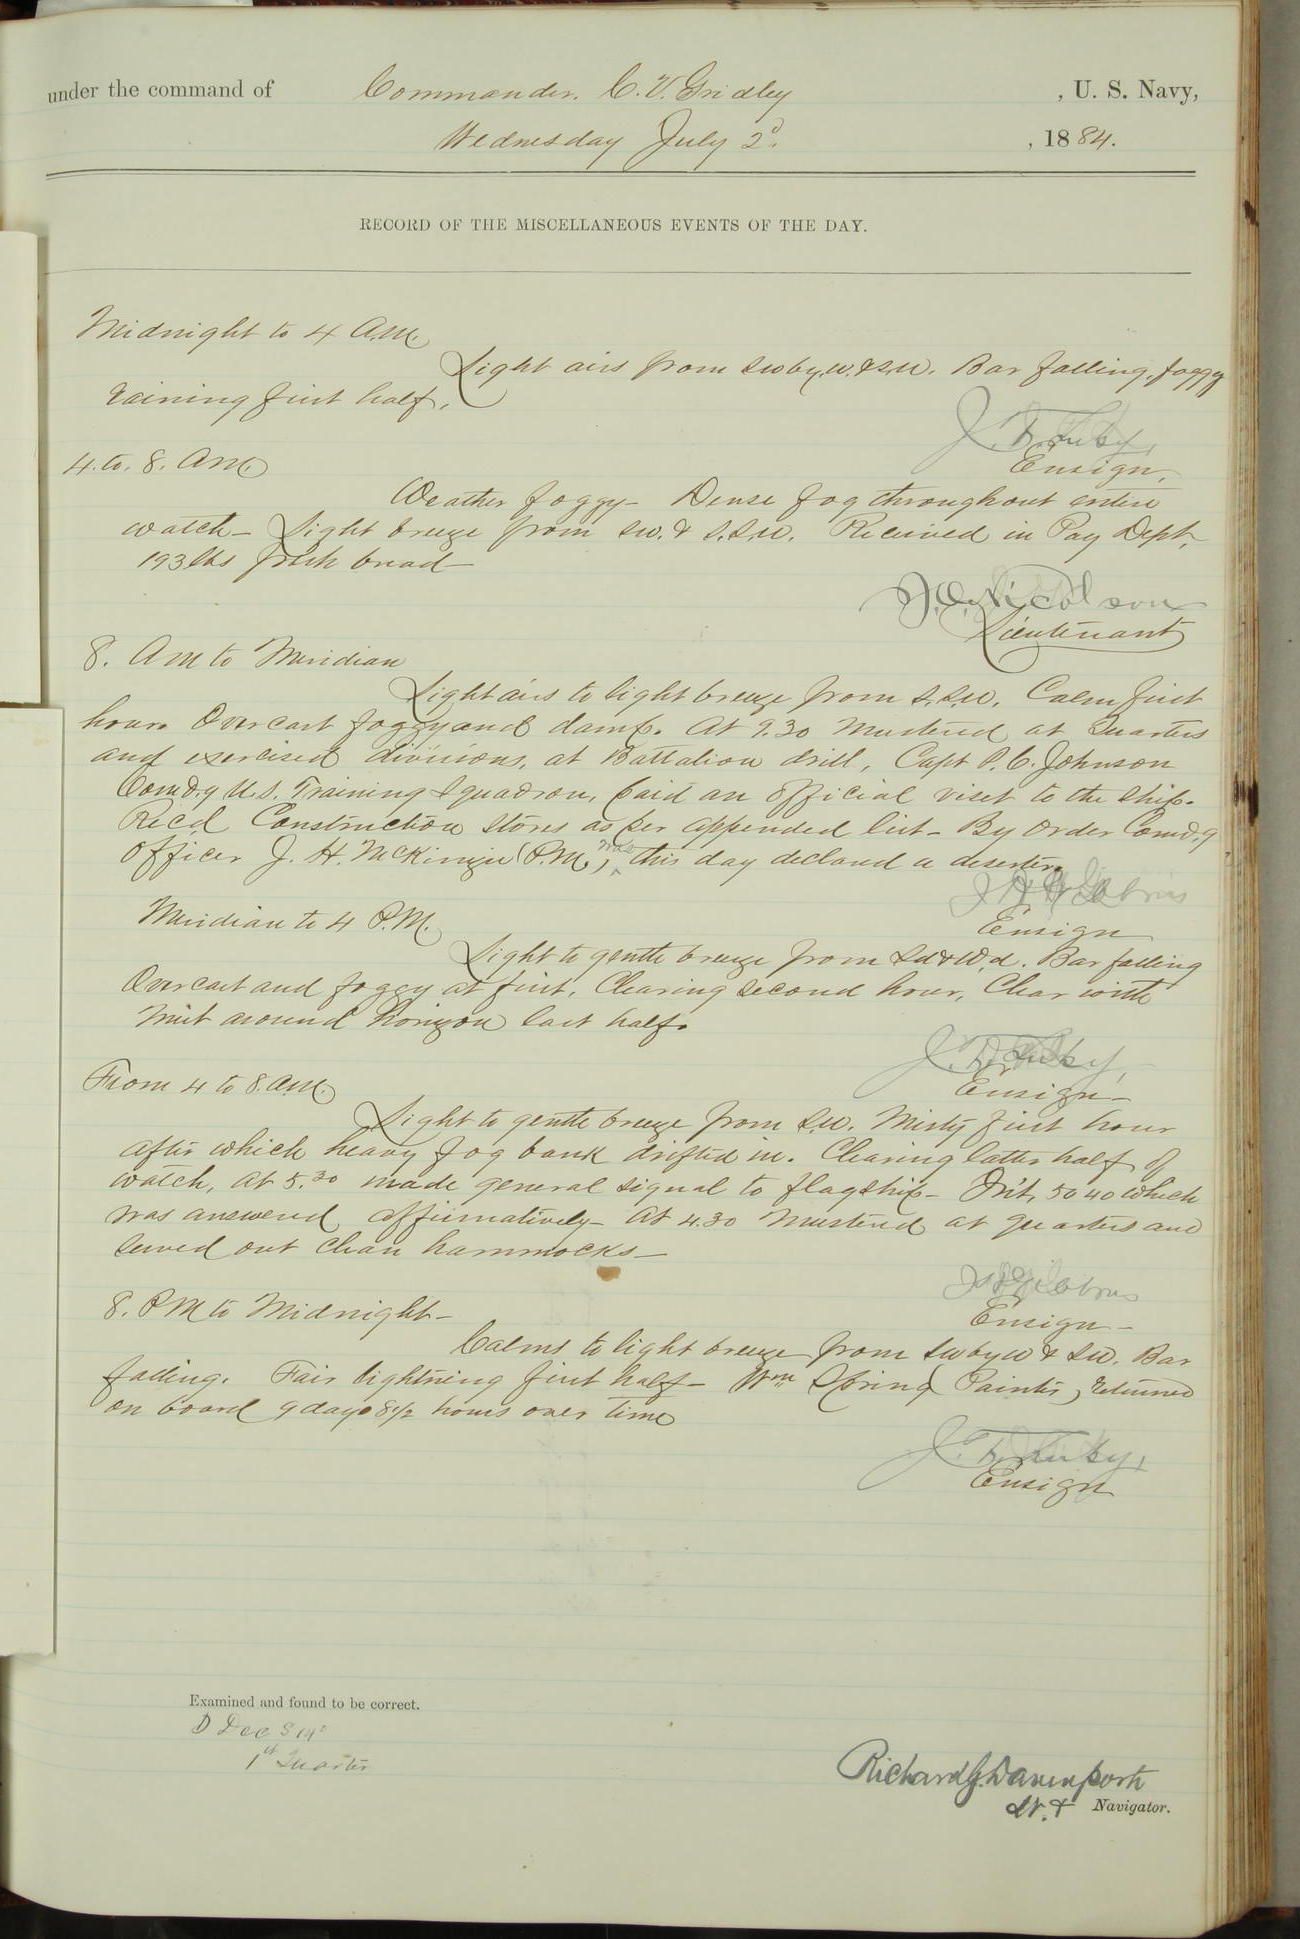 under the command of Commander. C. V. Gridley , U. S. Navy,
Wednesday July 2d. , 1884.
RECORD OF THE MISCELLANEOUS EVENTS OF THE DAY.
Midnight to 4 A.M.
Light airs from SW by W. & S.W. Bar falling, foggy
raining first half.
Ensign,
4. to. 8. A.M.
Weather foggy - Dense fog throughout entire
watch - Light breeze from SW. & S.S.W. Received in Pay Dept,
193 lbs fresh bread -
Nicolson
Lieutenant
8. A M to Meridian
Light airs to light breeze from S.S.W. Calm first
hour. Overcast foggy and damp. At 9.30 Mustered at Quarters
and exercised divisions, at Battalion drill, Capt P. C. Johnson
Comd'g U.S. Training Squadron, paid an official visit to the ship.
Recd Construction Stores as per appended list - By order Comd'g
officer J. H. McKinzie (P.M.) was this day declared a deserter.
Ensign
Meridian to 4 P.M.
Light to gentle breeze from Sd & Wd. Bar falling
Overcast and foggy at first, Clearing second hour, Clear with
mist around horizon last half.
Ensign -
From 4 to 8. A.M.
Light to gentle breeze from S.W. Misty first hour
after which heavy fog bank drifted in. Clearing latter half of
watch, at 5.30 made general signal to flagship - Int, 5040 which
was answered affirmatively - At 4.30 Mustered at quarters and
served out clean hammocks -
Ensign -
8. P M to Midnight -
Calms to light breeze from SW by W & SW. Bar
falling. Fair lightning first half - Wm Spring Painter, returned
on board 9 days 8 1/2 hours over time
Ensign
Examined and found to be correct.
1st Quarter
Richard G. Davenport
Lt. & Navigator.